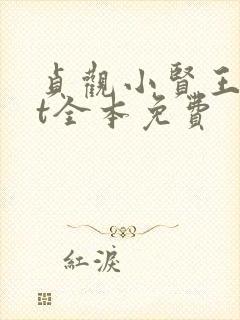 貞觀小賢王
t全本免費
紅淚